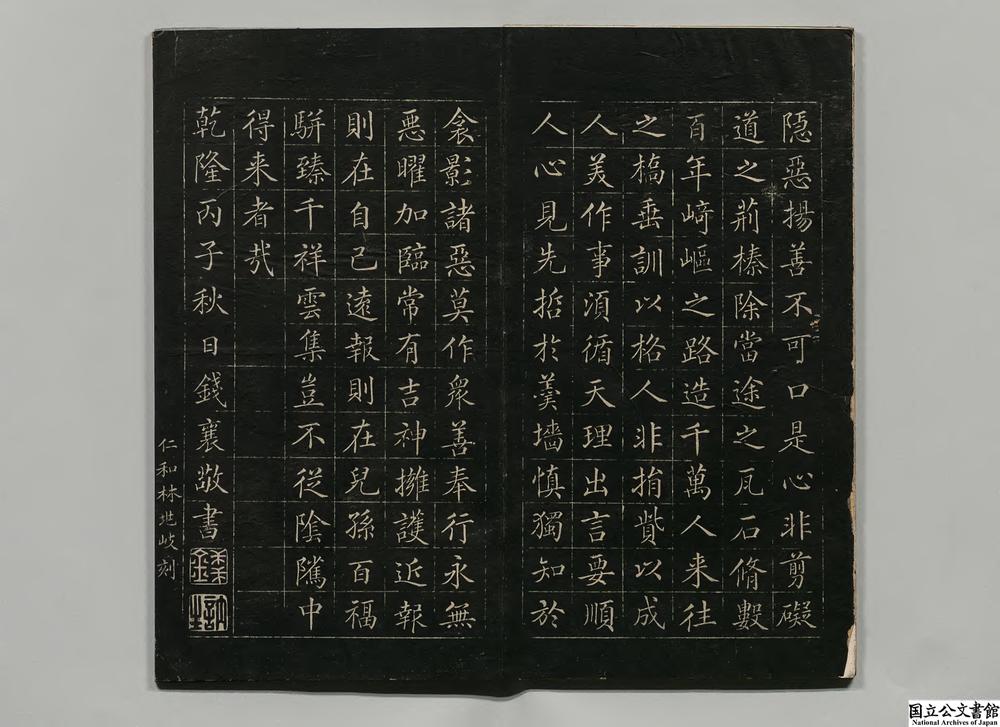 隱惡揚善不可口是心非剪礙
道之荊榛除當途之瓦石脩數
百年崎嶇之路造千萬人来往
之橋垂訓以格人非捐貲以成
人美作事須循天理出言要順
人心見先哲於羹墻慎獨知於
衾影諸惡莫作衆善奉行永無
惡曜加臨常有吉神擁護近報
則在自己遠報則在兒孫百福
駢臻千祥雲集豈不從陰隲中
得来者哉
乾隆丙子秋日錢襄敬書
仁和林地岐刻
国立公文書館
National Archives of Japan